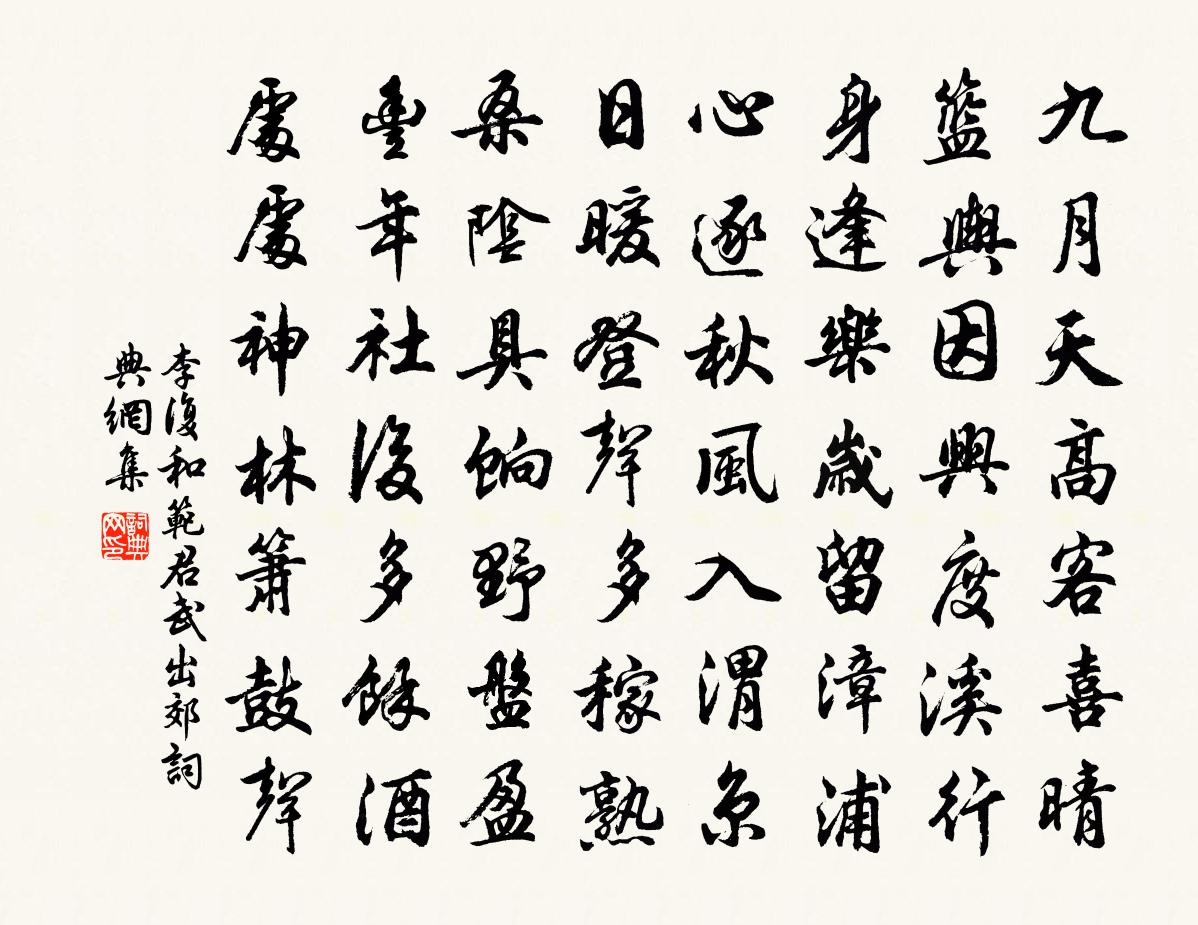 九月天高客喜晴
籃輿因興度溪行
身逢樂歲留漳浦
心逐秋風入渭京
日暖登聲多稼熟
桑陰具餉野盤盈
豐年社後多餘酒
處處神林簫鼓聲
李復和範君武出郊詞
典網集
詞典網印